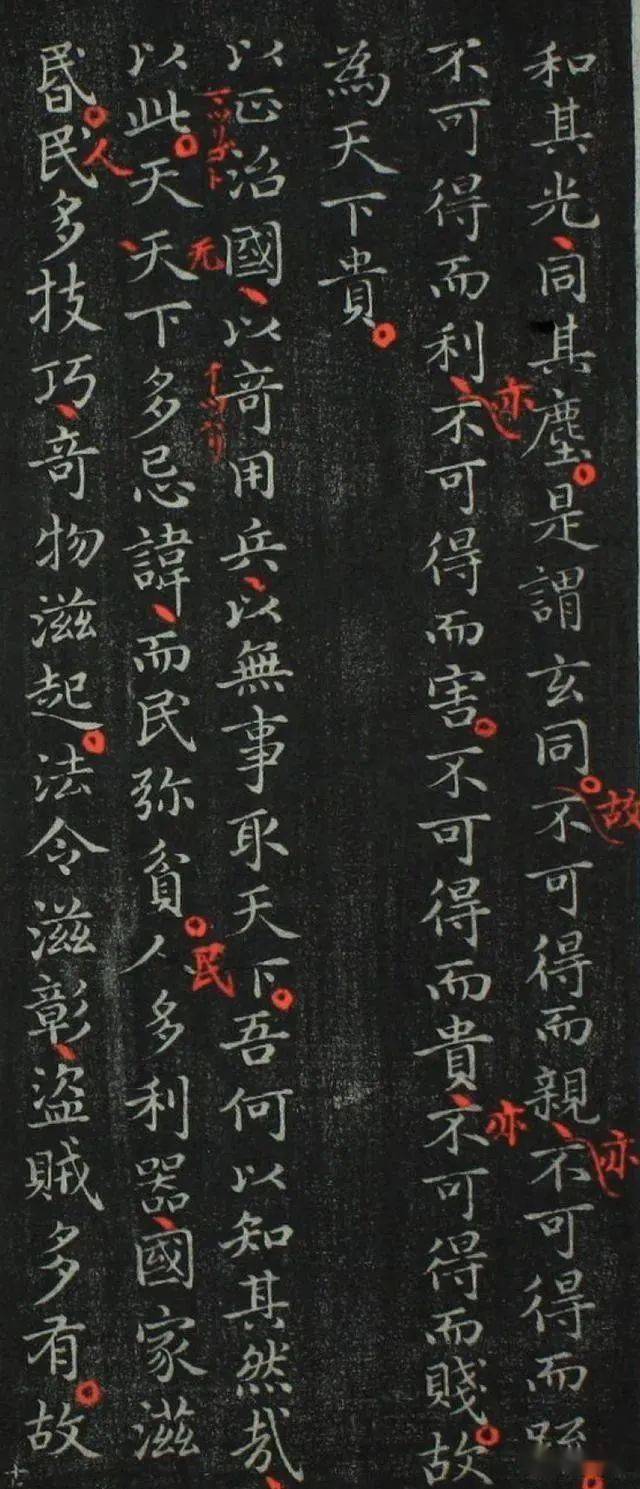 和其光同其塵是謂玄同不可得而親不可得而踈
故
亦
不可得而利不可得而害不可得而貴不可得而賤故
亦
亦
為天下貴
以正治國以奇用兵以無事取天下吾何以知其然哉
以此天天下多忌諱而民弥貧人多利器國家滋
无
民
昬民多技巧奇物滋起法令滋彰盜賊多有故
人